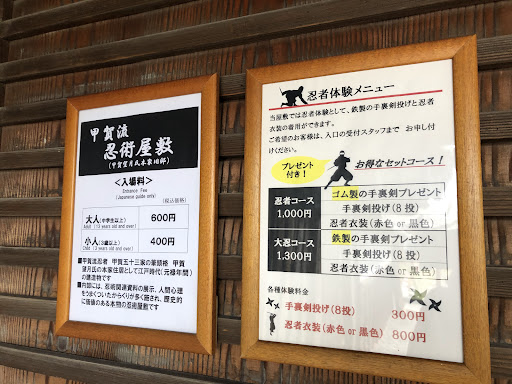 甲賀流
忍術屋敷
(甲賀望月氏本家旧邸)
<入場料>
Entrance Fee
(Japanese guide only)
(税込価格)
大人(中学生以上) 600円
Adult (13 years old and over)
小人(3歳以上) 400円
Child (3 years old and over)
■甲賀流忍者 甲賀五十三家の筆頭格 甲賀
望月氏の本家住居として江戸時代(元禄年間)
の建造物です
■内部には、忍術関連資料の展示、人間心理
をうまくついたからくりが多く施され、歴史的
に価値のある本物の忍術屋敷です
忍者体験メニュー
当屋敷では忍者体験として、鉄製の手裏剣投げと忍者
衣装の着用ができます。
ご希望のお客様は、入口の受付スタッフまで お申し付
けください。
プレゼント
付き!
お得なセットコース!
忍者コース
1,000円
ゴム製の手裏剣プレゼント
手裏剣投げ(8投)
忍者衣装(赤色 or 黒色)
大忍コース
1,300円
鉄製の手裏剣プレゼント
手裏剣投げ(8投)
忍者衣装(赤色 or 黒色)
各種体験料金
手裏剣投げ(8投) 300円
忍者衣装(赤色 or 黒色) 800円